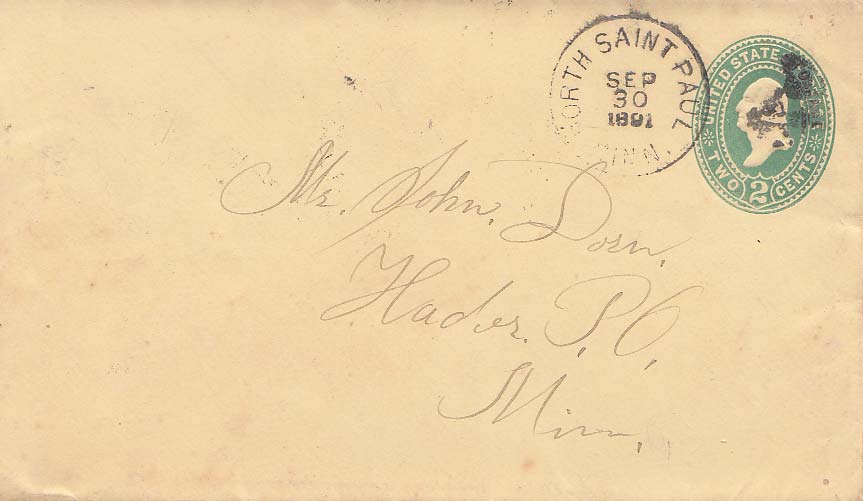 NORTH SAINT PAUL
SEP
30
1891
MINN.
UNITED STATES
TWO 2 CENTS
Mr. John, Dorn,
Hader. P, O,
Minn,